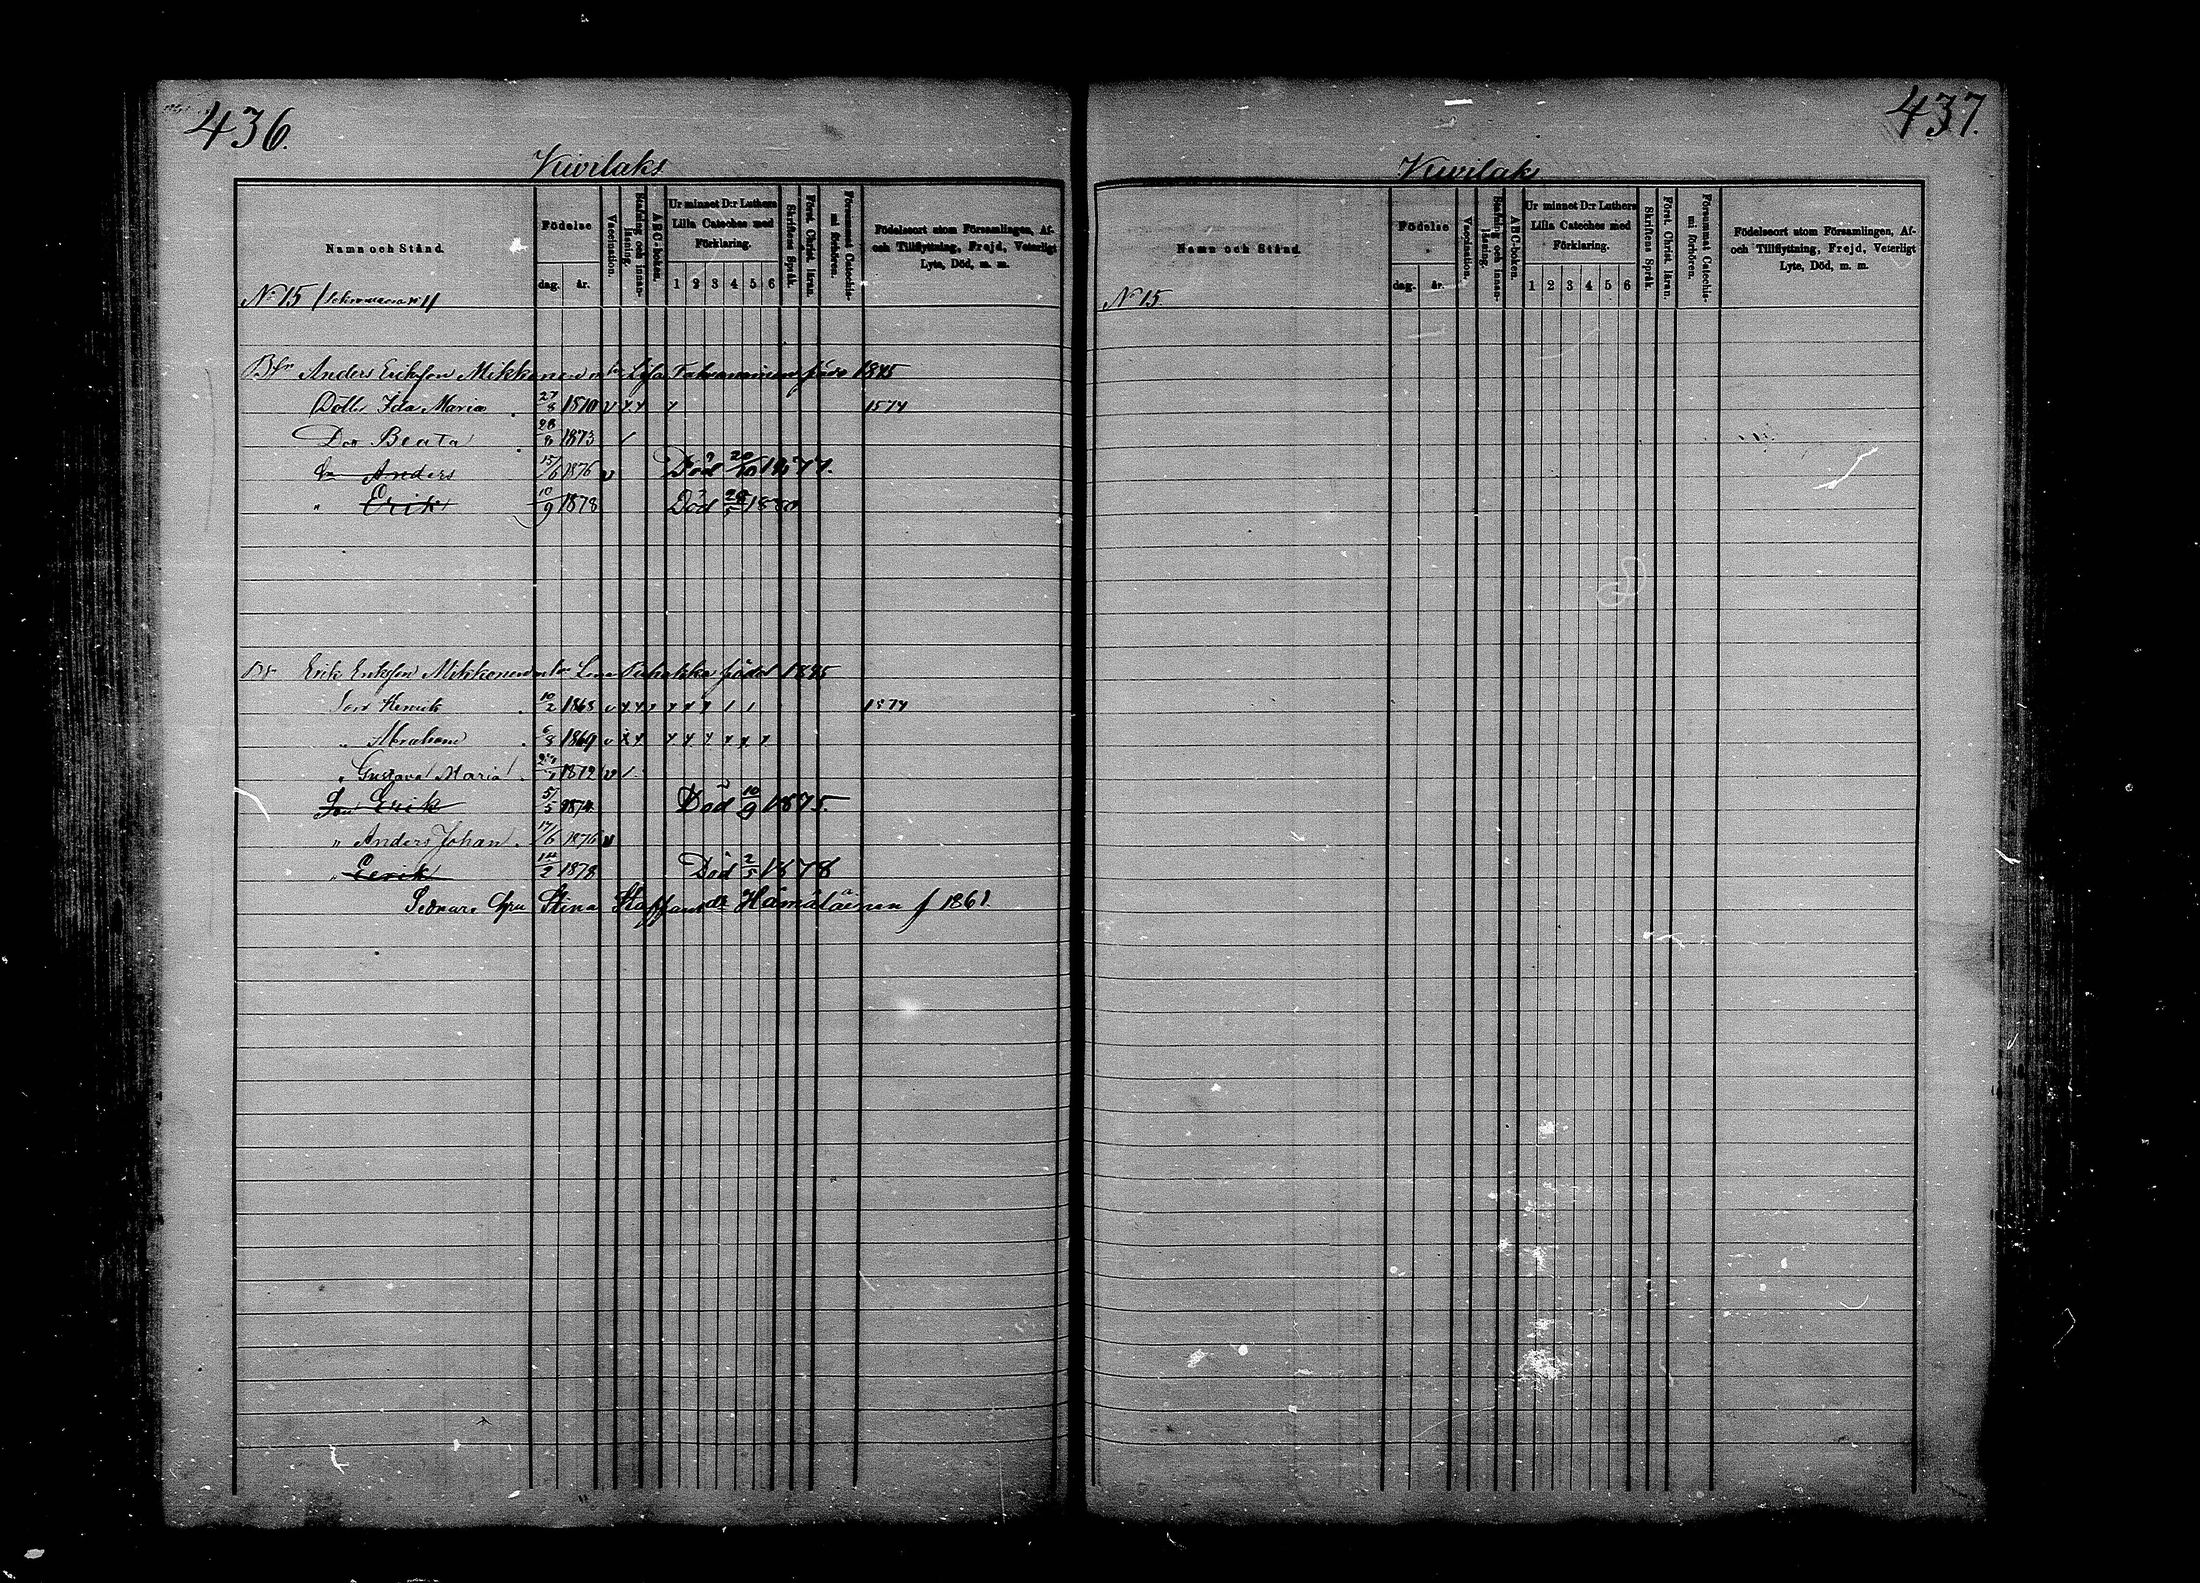 436.
Kivilaks
Namn och Stånd.
Födelse
dag.
år.
Vaccination.
Bokstaf- och innanläsning.
ABC-boken.
Ur minnet D:r Luthers
Lilla Cateches med
Förklaring.
1 2 3 4 5 6
Skriftens Språk.
Först. Christ. läran.
Försummat Catechismi förhören.
Födelseort utom Församlingen, Af-
och Tillflyttning, Frejd, Veterligt
Lyte, Död, m. m.
No 15
Anders Eriksson Mikkonen Lisa född 1845
Dottr Ida Maria 27/8 1870 v x x x 1874
Dor Beata 28/8 1873 /
Sn Anders 15/6 1876 v Död 20/10 1877.
" Erik 10/9 1878 Död 1880
Erik Eriksson Mikkonen Lena född 1845
Son Henrik 10/2 1868 1874
" Abraham 6/8 1869 v x x x x x x x x
" Gustava Maria 1872 v /
Son Erik 5/5 1874 Död 10/9 1875.
" Anders Johan 17/6 1876 v
" Eerik 1878 Död 2/5 1878
Sednare Hju Stina Staffansdr Hämäläinen f 1861.
437.
Kivilaks
Namn och Stånd.
Födelse
dag.
år.
Vaccination.
Bokstaf- och innanläsning.
ABC-boken.
Ur minnet D:r Luthers
Lilla Cateches med
Förklaring.
1 2 3 4 5 6
Skriftens Språk.
Först. Christ. läran.
Försummat Catechismi förhören.
Födelseort utom Församlingen, Af-
och Tillflyttning, Frejd, Veterligt
Lyte, Död, m. m.
No 15.